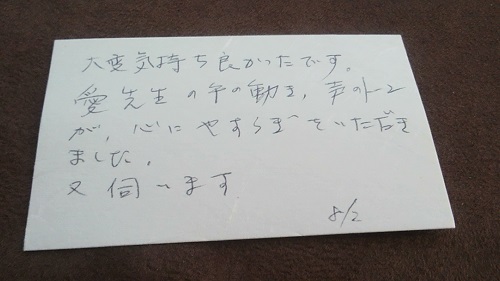 大変気持ち良かったです。
愛先生の手の動き、声のトーン
が、心にやすらぎをいただき
ました。
又伺います
8/2